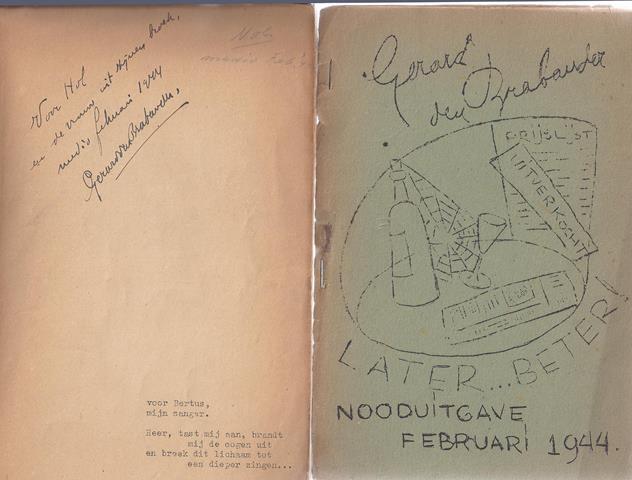 Voor Hol
en de vrouw uit zijn broek,
medio februari 1944
Gerard den Brabander,
Hol
medio Feb
voor Bertus,
mijn zanger.
Heer, tast mij aan, brandt
mij de oogen uit
en breek dit lichaam tot
een dieper zingen...
Gerard
den Brabander
PRIJSLIJST
UITVERKOCHT
LATER...BETER!
NOODUITGAVE
FEBRUARI 1944.